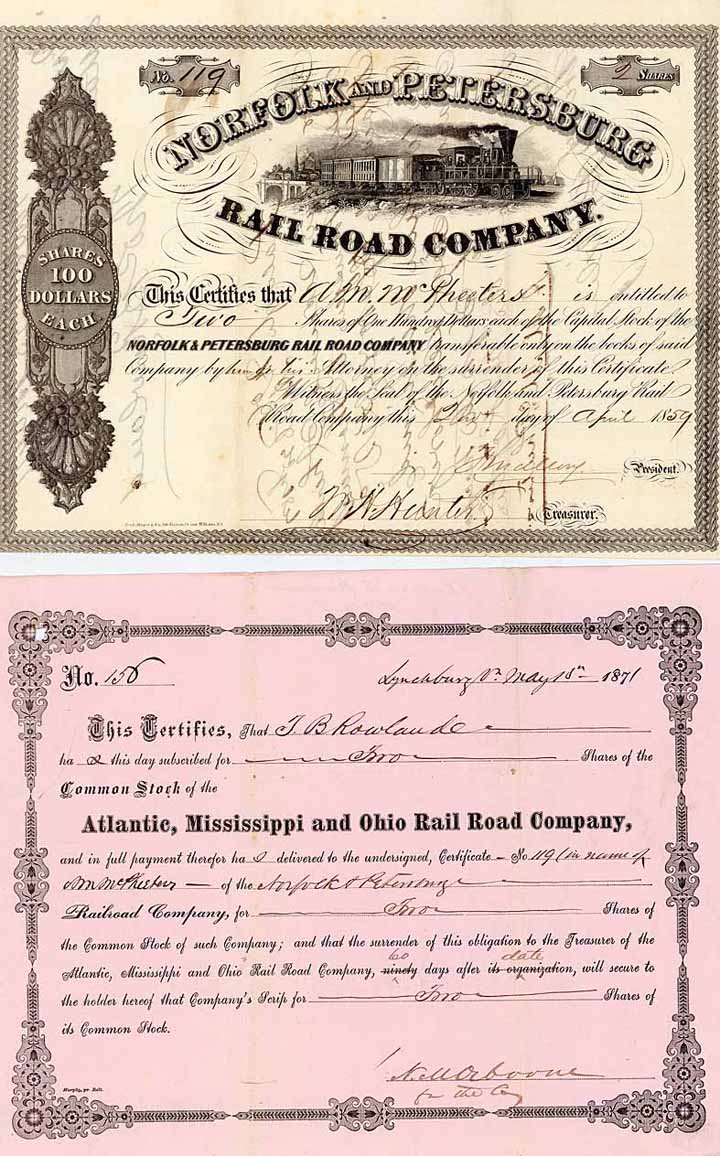 No. 119
2 SHARES
NORFOLK AND PETERSBURG
RAIL ROAD COMPANY.
SHARES
100
DOLLARS
EACH
This Certifies that A. M. McPheeters is entitled to
Two Shares of One Hundred Dollars each of the Capital Stock of the
NORFOLK & PETERSBURG RAIL ROAD COMPANY transferable only on the books of said
Company by him or his Attorney on the surrender of this Certificate
Witness the Seal of the Norfolk and Petersburg Rail
Road Company this day of April 1859
President.
Treasurer.
No. 156
Lynchburg Va May 18th 1871
This Certifies, That T. B. Rowland
ha s this day subscribed for Two Shares of the
Common Stock of the
Atlantic, Mississippi and Ohio Rail Road Company,
and in full payment therefor ha s delivered to the undersigned, Certificate No 119 (in name of
AM McPheeters of the Norfolk & Petersburg
Railroad Company, for Two Shares of
the Common Stock of such Company; and that the surrender of this obligation to the Treasurer of the
60 date
Atlantic, Mississippi and Ohio Rail Road Company, ninety days after its organization, will secure to
the holder hereof that Company's Scrip for Two Shares of
its Common Stock.
for the Co
Murphy, pr. Balt.